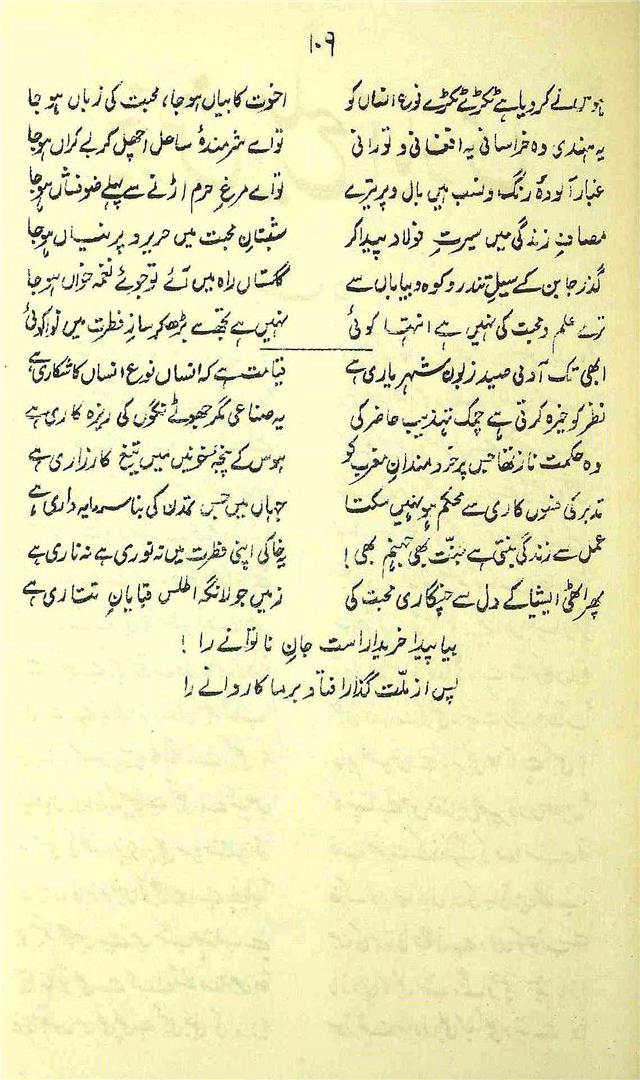 ۱۰۹
ہوس نے کر دیا ہے ٹکڑے ٹکڑے نوعِ انساں کو اخوت کا بیاں ہو جا، محبت کی زباں ہو جا
یہ ہندی وہ خراسانی یہ افغانی وہ تورانی تو اے شرمندۂ ساحل اچھل کر بے کراں ہو جا
غبار آلودۂ رنگ و نسب ہیں بال و پر تیرے تو اے مرغِ حرم اڑنے سے پہلے پرفشاں ہو جا
مصافِ زندگی میں سیرتِ فولاد پیدا کر شبستانِ محبت میں حریر و پرنیاں ہو جا
گذر جا بن کے سیلِ تندرو کوہ و بیاباں سے گلستاں راہ میں آئے تو جوئے نغمہ خواں ہو جا
ترے علم و محبت کی نہیں ہے انتہا کوئی نہیں ہے تجھ سے بڑھ کر سازِ فطرت میں نوا کوئی
ابھی تک آدمی صیدِ زبونِ شہر یاری ہے قیامت ہے کہ انساں نوعِ انساں کا شکاری ہے
نظر کو خیرہ کرتی ہے چمک تہذیبِ حاضر کی یہ صناعی مگر جھوٹے نگوں کی ریزہ کاری ہے
وہ حکمت ناز تھا جس پر خردمندانِ مغرب کو ہوس کے پنجۂ خونیں میں تیغِ کارزاری ہے
تدبر کی فسوں کاری سے محکم ہو نہیں سکتا جہاں میں جس تمدن کی بنا سرمایہ داری ہے
عمل سے زندگی بنتی ہے جنت بھی جہنم بھی! یہ خاکی اپنی فطرت میں نہ نوری ہے نہ ناری ہے
پھر اٹھی ایشیا کے دل سے چنگاری محبت کی زمیں جولانگہِ اطلس قبایانِ تتاری ہے
بیا پیدا خریدار است جانِ ناتوانے را!
پس از مدت گذار افتاد بر ما کاروانے را